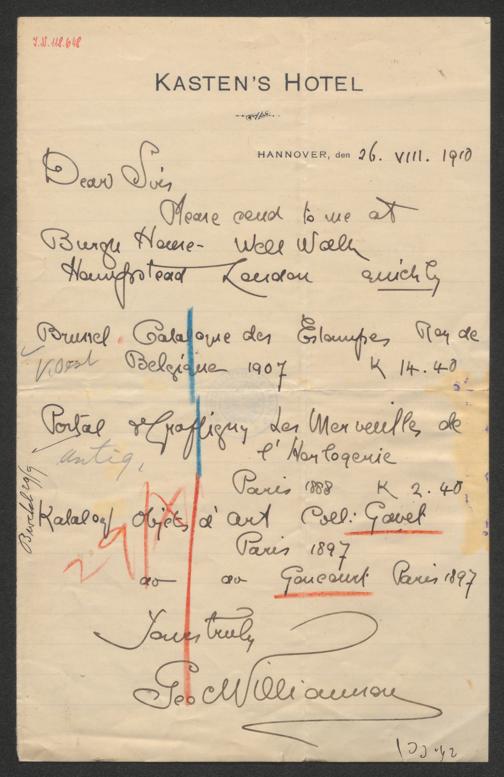 I.N. 118.648
KASTEN'S HOTEL
HANNOVER, den 26. VIII. 1910
Dear Sirs
Please send to me at
Burgh House - Well Walk
Hampstead London quickly
Brussel. Catalogue des Estampes Roy de
Belgique 1907 K 14.40
Portal & Graffigny Les Merveilles de
antiq.
l'Horlogerie
Paris 1888 K 2.40
Katalog Objets d'art Coll: Gavet
Paris 1897
29/8
do do Goncourt Paris 1897
Yours truly
Geo C Williamson